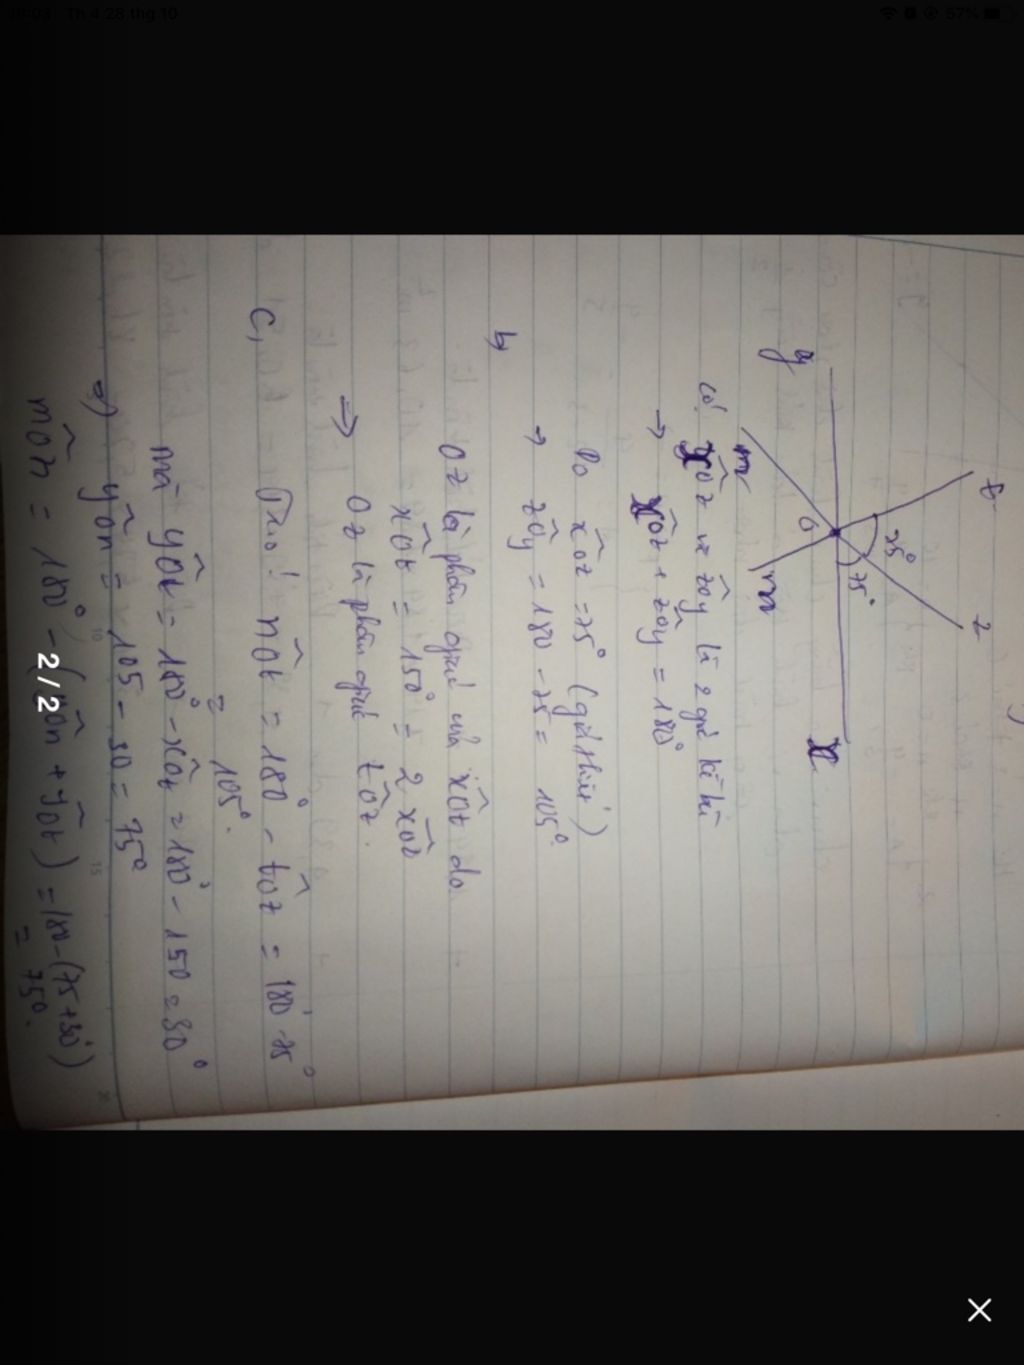 Th 4 28 thg 10
57%
y
t
z
m
O
75°
75°
có xOz và zOy là 2 góc kề bù
→ xOz + zOy = 180°
Do xOz = 75° (giả thiết)
→ zOy = 180 - 75 = 105°
b,
Oz là phân giác của xOt do
xOt = 150° = 2 xOz
⇒ Oz là phân giác tOz.
C,
nOt = 180° - tOz = 180 - 75°
= 105°.
mà yOt = 180° - xOt = 180° - 150 = 30°
⇒ yOn = 105 - 30 = 75°
mOn = 180° - (yOn + yOt) = 180 - (75 + 30)
= 75°.
2 / 2